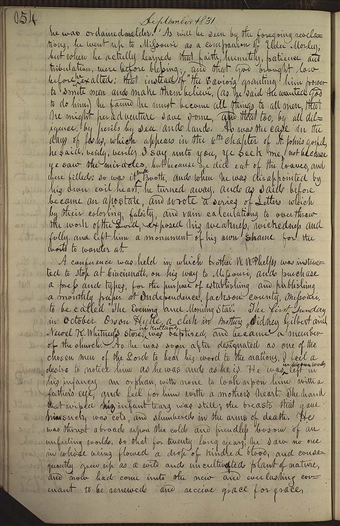 054
September 1831
he was ordained an elder! As will be seen by the foregoing revela-
tions, he went up to Missouri as a companion of Elder Morley,
but when he actually learned that faith, humility, patience and
tribulation, were before blessing, and that God brought low
before he exalted; that instead of the Savior's granting him power
to smite men and make them believe, (as he said he wanted God
to do him) he found he must become all things to all men, that
he might peradventure save some, and that too, by all dil-
igence, by perils by sea and land. As was the case in the
days of Jesus, which appears in the 6th chapter of St. John's gospel,
he said, verily, verily I say unto you, ye seek me, not because
ye saw the miracles, but because ye did eat of the loaves and
were filled; so was it with Booth, and when he was disappointed by
his own evil heart, he turned away, and as said before
became an apostate, and wrote a series of Letters which
by their coloring, falsity, and vain calculations to overthrow
the work of the Lord exposed his weakness, wickedness and
folly, and left him a monument of his own shame for the
world to wonder at.
A conference was held in which brother W. W. Phelps was instruc-
ted to stop at Cincinnati, on his way to Missouri, and purchase
a press and types, for the purpose of establishing and publishing
a monthly paper at Independence, Jackson county, Missouri
to be called The Evening and Morning Star. The first Sunday
in October Orson Hyde, a clerk in brothers Sidney Gilbert and
Newel K. Whitney's store, in Kirtland was baptized, and became a member
of the church. As he was soon after designated as one of the
chosen men of the Lord to bear his word to the nations, I feel a
desire to notice him as he was and as he is. He was left in
his infancy, an orphan, with none to look upon him with a
father's eye, and feel for him with a mother's heart. The hand
that wiped his infant tears was still; the breast that gave
him suck was cold, and slumbered in the arms of death. He
was thrown abroad upon the cold and friendless bosom of an
unfeeling world, so that for twenty long years, he saw no one
in whose veins flowed a drop of kindred blood, and conse-
quently grew up as a wild and uncultivated plant of nature,
and now had come into the new and everlasting cov-
enant to be renewed and receive grace for grace,